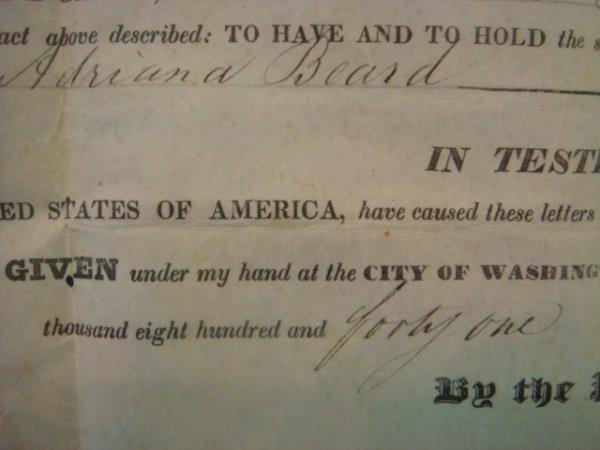 act above described: TO HAVE AND TO HOLD the s
Adriana Beard
IN TEST
ED STATES OF AMERICA, have caused these letters
GIVEN under my hand at the CITY OF WASHING
thousand eight hundred and forty one
By the